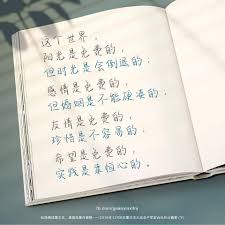 这个世界，
阳光是免费的，
但时光是会倒退的；
感情是免费的，
但婚姻是不能硬凑的，
友情是免费的，
珍惜是不容易的，
希望是免费的，
实践是来恒心的。